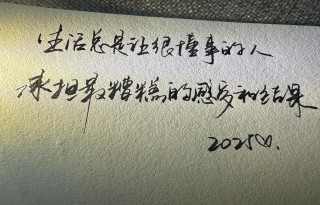 生活总是让很懂事的人
承担最糟糕的感受和结果
2025♡.